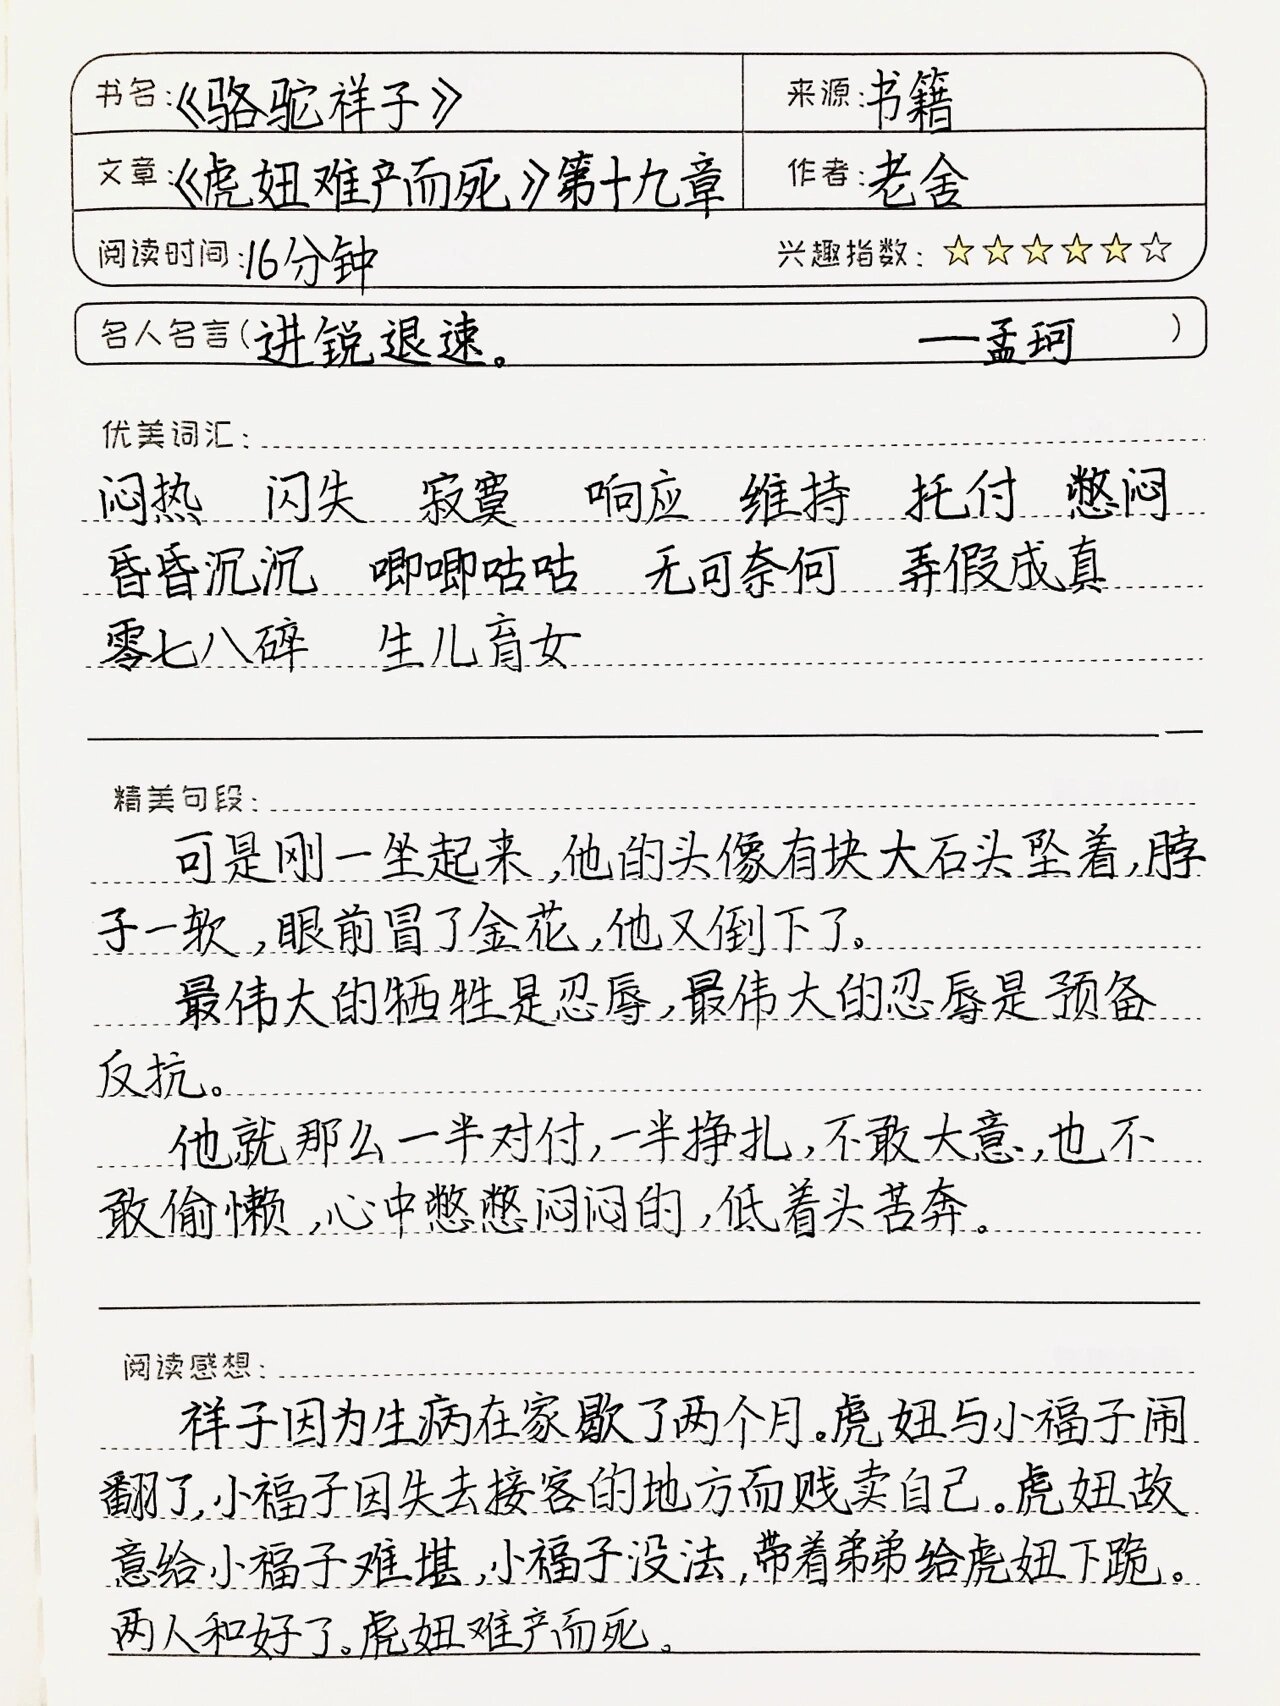 书名:《骆驼祥子》 来源:书籍
文章:《虎妞难产而死》第十九章 作者:老舍
阅读时间:16分钟 兴趣指数:
名人名言(进锐退速。 —孟珂)
优美词汇:
闷热 闪失 寂寞 响应 维持 托付 憋闷
昏昏沉沉 唧唧咕咕 无可奈何 弄假成真
零七八碎 生儿育女
精美句段:
可是刚一坐起来,他的头像有块大石头坠着,脖
子一软,眼前冒了金花,他又倒下了。
最伟大的牺牲是忍辱,最伟大的忍辱是预备
反抗。
他就那么一半对付,一半挣扎,不敢大意,也不
敢偷懒,心中憋憋闷闷的,低着头苦奔。
阅读感想:
祥子因为生病在家歇了两个月。虎妞与小福子闹
翻了,小福子因失去接客的地方而贱卖自己。虎妞故
意给小福子难堪,小福子没法,带着弟弟给虎妞下跪。
两人和好了。虎妞难产而死。